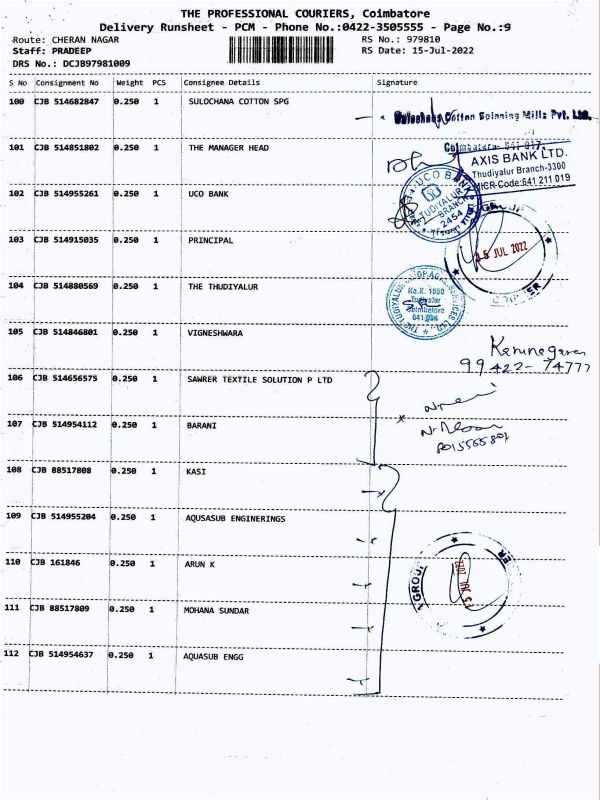 THE PROFESSIONAL COURIERS, Coimbatore
Delivery Runsheet - PCM - Phone No.:0422-3505555 - Page No.:9
Route: CHERAN NAGAR RS No.: 979810
Staff: PRADEEP RS Date: 15-Jul-2022
DRS No.: DCJB97981009
S No Consignment No Weight PCS Consignee Details Signature
100 CJB 514682847 0.250 1 SULOCHANA COTTON SPG
Sulochana Cotton Spinning Mills Pvt. Ltd.
Coimbatore- 641 017.
101 CJB 514851802 0.250 1 THE MANAGER HEAD
AXIS BANK LTD.
Thudiyalur Branch-3300
MICR-Code:641 211 019
102 CJB 514955261 0.250 1 UCO BANK
UCO BANK
TUDIYALUR
BRANCH
2454
103 CJB 514915035 0.250 1 PRINCIPAL
JUL 2022
104 CJB 514880569 0.250 1 THE THUDIYALUR
No.K. 1550
Tudiyalur
Coimbatore
641 034
105 CJB 514846801 0.250 1 VIGNESHWARA
99422-74777
106 CJB 514656575 0.250 1 SAWRER TEXTILE SOLUTION P LTD
107 CJB 514954112 0.250 1 BARANI
108 CJB 88517808 0.250 1 KASI
109 CJB 514955204 0.250 1 AQUSASUB ENGINERINGS
110 CJB 161846 0.250 1 ARUN K
GROUP
111 CJB 88517809 0.250 1 MOHANA SUNDAR
112 CJB 514954637 0.250 1 AQUASUB ENGG